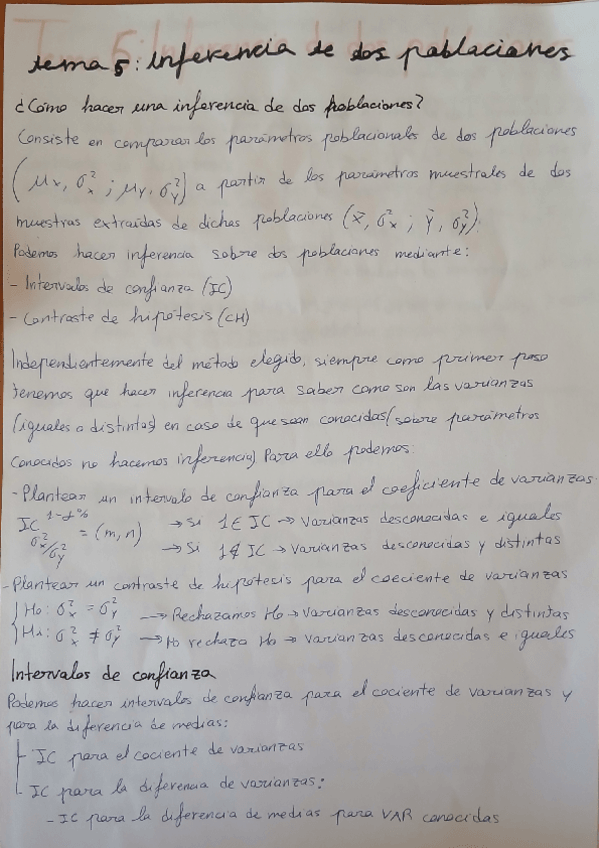 tema 5: Inferencia de dos poblaciones
¿Cómo hacer una inferencia de dos poblaciones?
Consiste en comparar los parámetros poblacionales de dos poblaciones
(μx, σ²x ; μy, σ²y) a partir de los parámetros muestrales de dos
muestras extraídas de dichas poblaciones (x̄, σ²x ; ȳ, σ²y).
Podemos hacer inferencia sobre dos poblaciones mediante:
- Intervalos de confianza (IC)
- Contraste de hipótesis (CH)
Independientemente del método elegido, siempre como primer paso
tenemos que hacer inferencia para saber como son las varianzas
(iguales o distintas) en caso de que sean conocidas (sobre parámetros
conocidos no hacemos inferencia) Para ello podemos:
- Plantear un intervalo de confianza para el coeficiente de varianzas.
IC 1-α% σ²x/σ²y = (m, n) → Si 1 ∈ IC → Varianzas desconocidas e iguales
→ Si 1 ∉ IC → Varianzas desconocidas y distintas
- Plantear un contraste de hipótesis para el coeciente de varianzas
{ H0: σ²x = σ²y → Rechazamos H0 → Varianzas desconocidas y distintas
{ H1: σ²x ≠ σ²y → No rechaza H0 → Varianzas desconocidas e iguales
Intervalos de confianza
Podemos hacer intervalos de confianza para el cociente de varianzas y
para la diferencia de medias:
- IC para el cociente de varianzas
- IC para la diferencia de varianzas:
- IC para la diferencia de medias para VAR conocidas